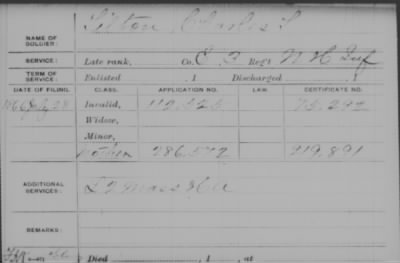 NAME OF SOLDIER: Tilton Charles F
SERVICE: Late rank, Co. E 3 Reg't N H Inf
TERM OF SERVICE: Enlisted , 1 Discharged , 1
DATE OF FILING. CLASS. APPLICATION NO. LAW. CERTIFICATE NO.
July 28 Invalid, 112,526 75,292
Widow,
Minor,
Mother 286,572 219,891
ADDITIONAL SERVICES: Mass H A
REMARKS:
Died , 1 , at